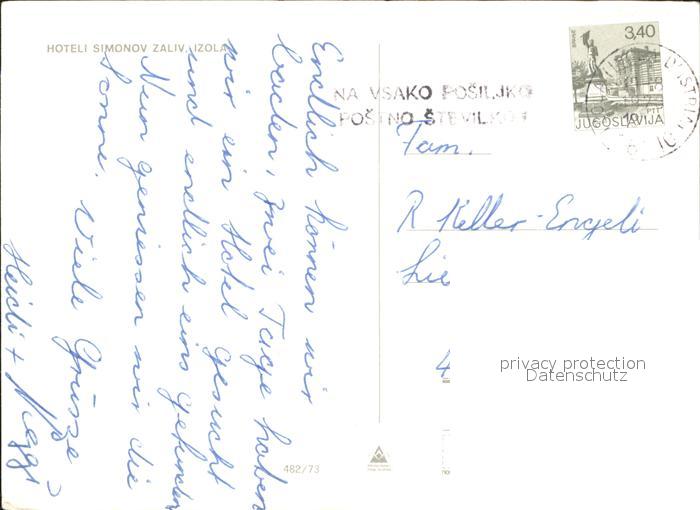 HOTELI SIMONOV ZALIV, IZOLA
Endlich können wir
baden, zwei Tage haben
wir ein Hotel gesucht
und endlich eins gefunden
Nun geniessen wir die
Sonne. Viele Grüsse
Heidi + Meggi
482/73
NA VSAKO POŠILJKO
POŠTNO ŠTEVILKO!
3,40
PTT
JUGOSLAVIJA
Fam.
R Keller-Engeli
Lie
4
privacy protection
Datenschutz